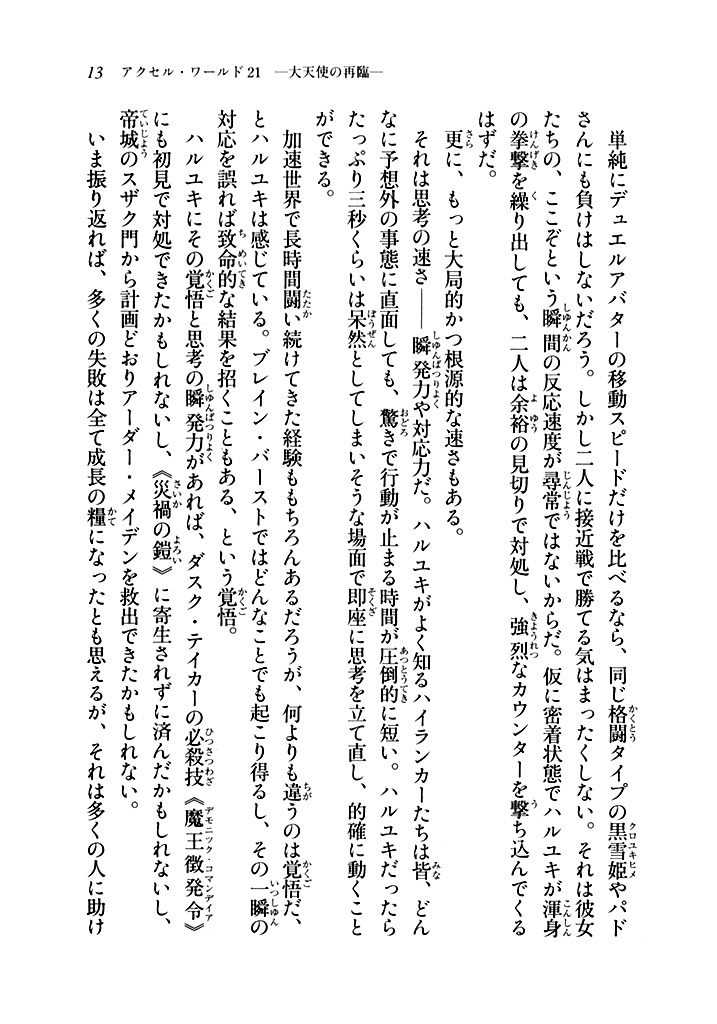 13　アクセル・ワールド21　―大天使の再臨―
　単純にデュエルアバターの移動スピードだけを比べるなら、同じ格闘タイプの黒雪姫やパド
さんにも負けはしないだろう。しかし二人に接近戦で勝てる気はまったくしない。それは彼女
たちの、ここぞという瞬間の反応速度が尋常ではないからだ。仮に密着状態でハルユキが渾身
の拳撃を繰り出しても、二人は余裕の見切りで対処し、強烈なカウンターを撃ち込んでくる
はずだ。
　更に、もっと大局的かつ根源的な速さもある。
　それは思考の速さ――瞬発力や対応力だ。ハルユキがよく知るハイランカーたちは皆、どん
なに予想外の事態に直面しても、驚きで行動が止まる時間が圧倒的に短い。ハルユキだったら
たっぷり三秒くらいは呆然としてしまいそうな場面で即座に思考を立て直し、的確に動くこと
ができる。
　加速世界で長時間闘い続けてきた経験ももちろんあるだろうが、何よりも違うのは覚悟だ、
とハルユキは感じている。ブレイン・バーストではどんなことでも起こり得るし、その一瞬の
対応を誤れば致命的な結果を招くこともある、という覚悟。
　ハルユキにその覚悟と思考の瞬発力があれば、ダスク・テイカーの必殺技《魔王徴発令》
にも初見で対処できたかもしれないし、《災禍の鎧》に寄生されずに済んだかもしれないし、
帝城のスザク門から計画どおりアーダー・メイデンを救出できたかもしれない。
　いま振り返れば、多くの失敗は全て成長の糧になったとも思えるが、それは多くの人に助け